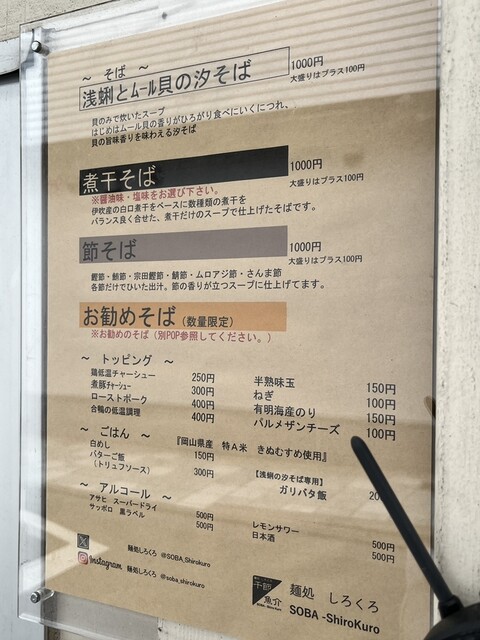 ～ そば ～
浅蜊とムール貝の汐そば
1000円
大盛りはプラス100円
貝のみで炊いたスープ
はじめはムール貝の香りがひろがり食べにいくにつれ、
貝の旨味香りを味わえる汐そば
煮干そば
1000円
大盛りはプラス100円
※醤油味・塩味をお選び下さい。
伊吹産の白口煮干をベースに数種類の煮干を
バランス良く合せた、煮干だけのスープで仕上げたそばです。
節そば
1000円
大盛りはプラス100円
鰹節・鮪節・宗田鰹節・鯖節・ムロアジ節・さんま節
各節だけでひいた出汁。節の香りが立つスープに仕上げてます。
お勧めそば（数量限定）
※お勧めのそば（別POP参照してください。）
～ トッピング ～
鶏低温チャーシュー 250円
煮豚チャーシュー 300円
ローストポーク 400円
合鴨の低温調理 400円
半熟味玉 150円
ねぎ 100円
有明海産のり 150円
パルメザンチーズ 100円
～ ごはん ～
『岡山県産 特A米 きぬむすめ使用』
白めし 150円
バターご飯
（トリュフソース） 300円
【浅蜊の汐そば専用】
ガリバタ飯
～ アルコール ～
アサヒ スーパードライ 500円
サッポロ 黒ラベル 500円
レモンサワー 500円
日本酒 500円
X 麺処しろくろ @SOBA_Shirokuro
Instagram 麺処しろくろ @soba_shirokuro
干節
魚介
麺処 しろくろ
SOBA -ShiroKuro